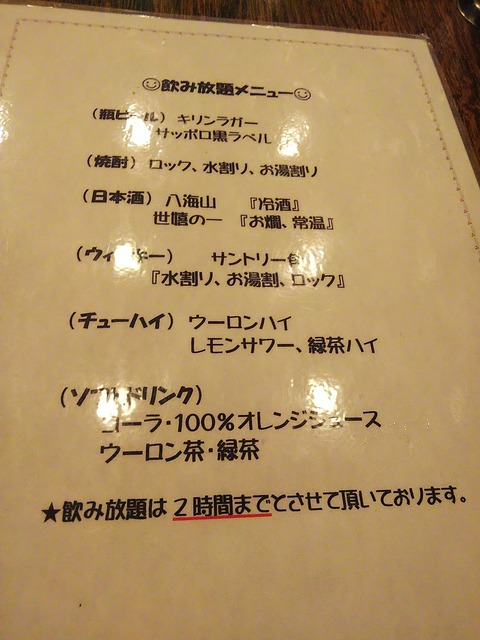 ☺飲み放題メニュー☺
(瓶ビール) キリンラガー
サッポロ黒ラベル
(焼酎) ロック、水割リ、お湯割リ
(日本酒) 八海山 『冷酒』
世嬉の一 『お燗、常温』
サントリー
『水割リ、お湯割、ロック』
(チューハイ) ウーロンハイ
レモンサワー、緑茶ハイ
(ソフトドリンク)
コーラ・100%オレンジジュース
ウーロン茶・緑茶
★飲み放題は 2時間までとさせて頂いております。